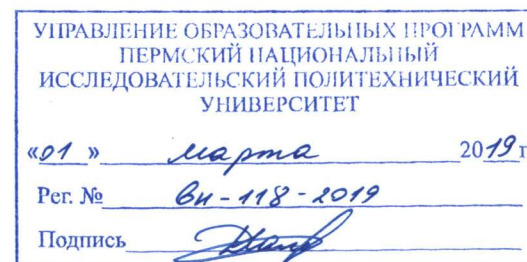 УПРАВЛЕНИЕ ОБРАЗОВАТЕЛЬНЫХ ПРОГРАММ
ПЕРМСКИЙ НАЦИОНАЛЬНЫЙ
ИССЛЕДОВАТЕЛЬСКИЙ ПОЛИТЕХНИЧЕСКИЙ
УНИВЕРСИТЕТ
«01» марта 2019 г
Рег. № вн-118-2019
Подпись